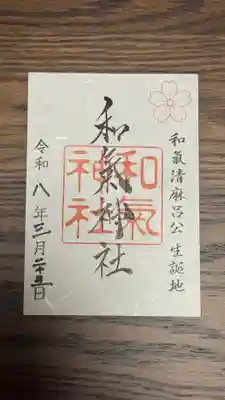 和氣清麻呂公生誕地
和氣神社
和氣
神社
令和八年三月二十五日